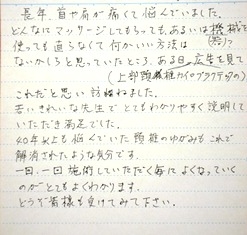 長年、首や肩が痛くて悩んでいました。
どんなにマッサージしてもらっても、あるいは機械を
(器)?
使っても直らなくて何かいい方法は
ないかしらと思っていたところ、ある日、広告を見て
(上部頸椎カイロプラクティックの)
これだと思い訪ねました。
若いきれいな先生でとてもわかりやすく説明して
いただき満足でした。
40年以上も悩んでいた頸椎のゆがみもこれで
解消されたような気分です。
一回、一回施術していただく毎によくなっていく
のがとてもよくわかります。
どうぞ皆様も受けてみて下さい。